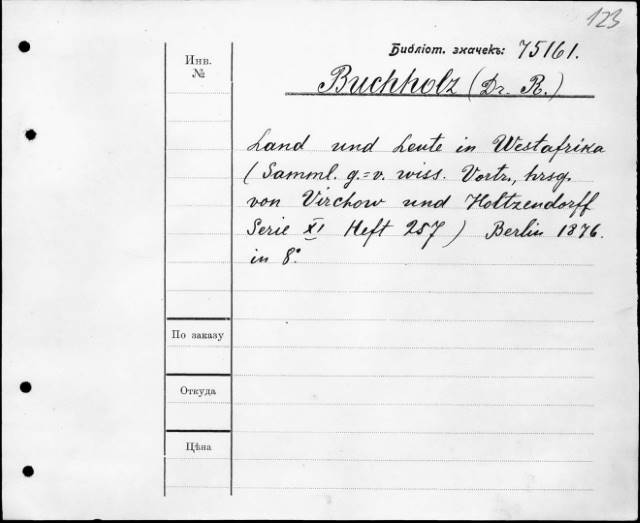 123
Библіот. значекъ: 75161.
Инв.
№
Buchholz (Dr. R.)
Land und Leute in Westafrika
(Samml. g.=v. wiss. Vortr., hrsg.
von Virchow und Holtzendorff
Serie XI Heft 257) Berlin 1876.
in 8°.
По заказу
Откуда
Цѣна